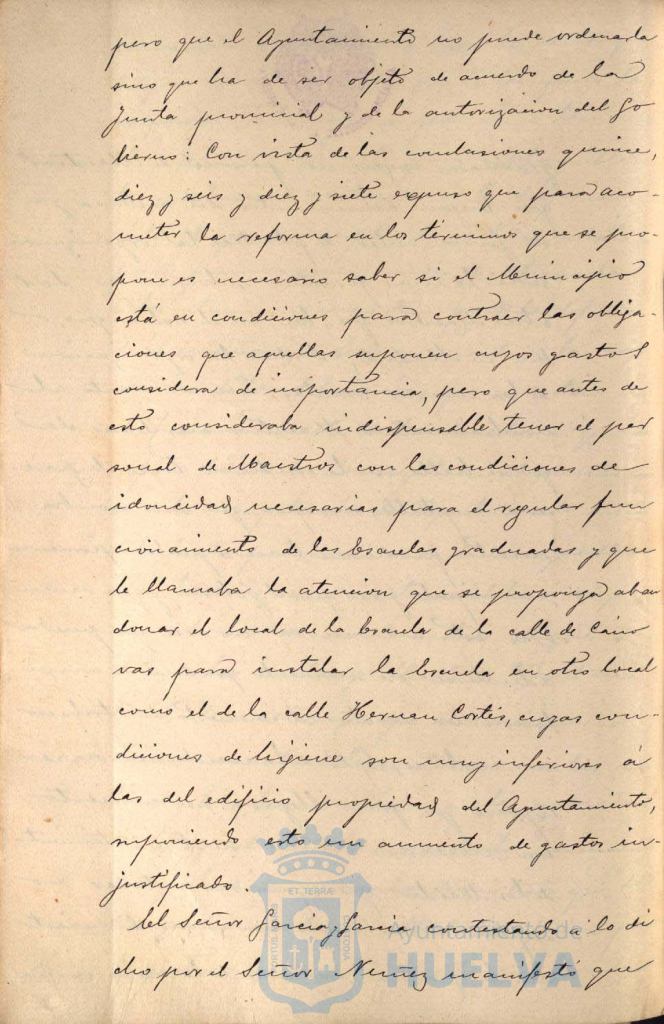 pero que el Ayuntamiento no puede ordenarla
sino que ha de ser objeto de acuerdo de la
Junta provincial y de la autorizacion del Go
bierno: Con vista de las conclusiones quince,
diez y seis y diez y siete expuso que para aco-
meter la reforma en los términos que se pro-
pone es necesario saber si el Municipio
está en condiciones para contraer las obliga-
ciones que aquellas suponen cuyos gastos
considera de importancia, pero que antes de
esto consideraba indispensable tener el per
sonal de Maestros con las condiciones de
idoneidad necesarias para el regular fun
cionamiento de las Escuelas graduadas y que
le llamaba la atencion que se proponga aban
donar el local de la Escuela de la calle de Cáno
vas para instalar la Escuela en otro local
como el de la calle Hernan Cortés, cuyas con-
diciones de higiene son muy inferiores á
las del edificio propiedad del Ayuntamiento,
suponiendo esto un aumento de gastos in-
justificado.
El Señor Garcia y Garcia contestando á lo di
cho por el Señor Nuñez manifestó que
ET TERRÆ
Ayuntamiento de
HUELVA